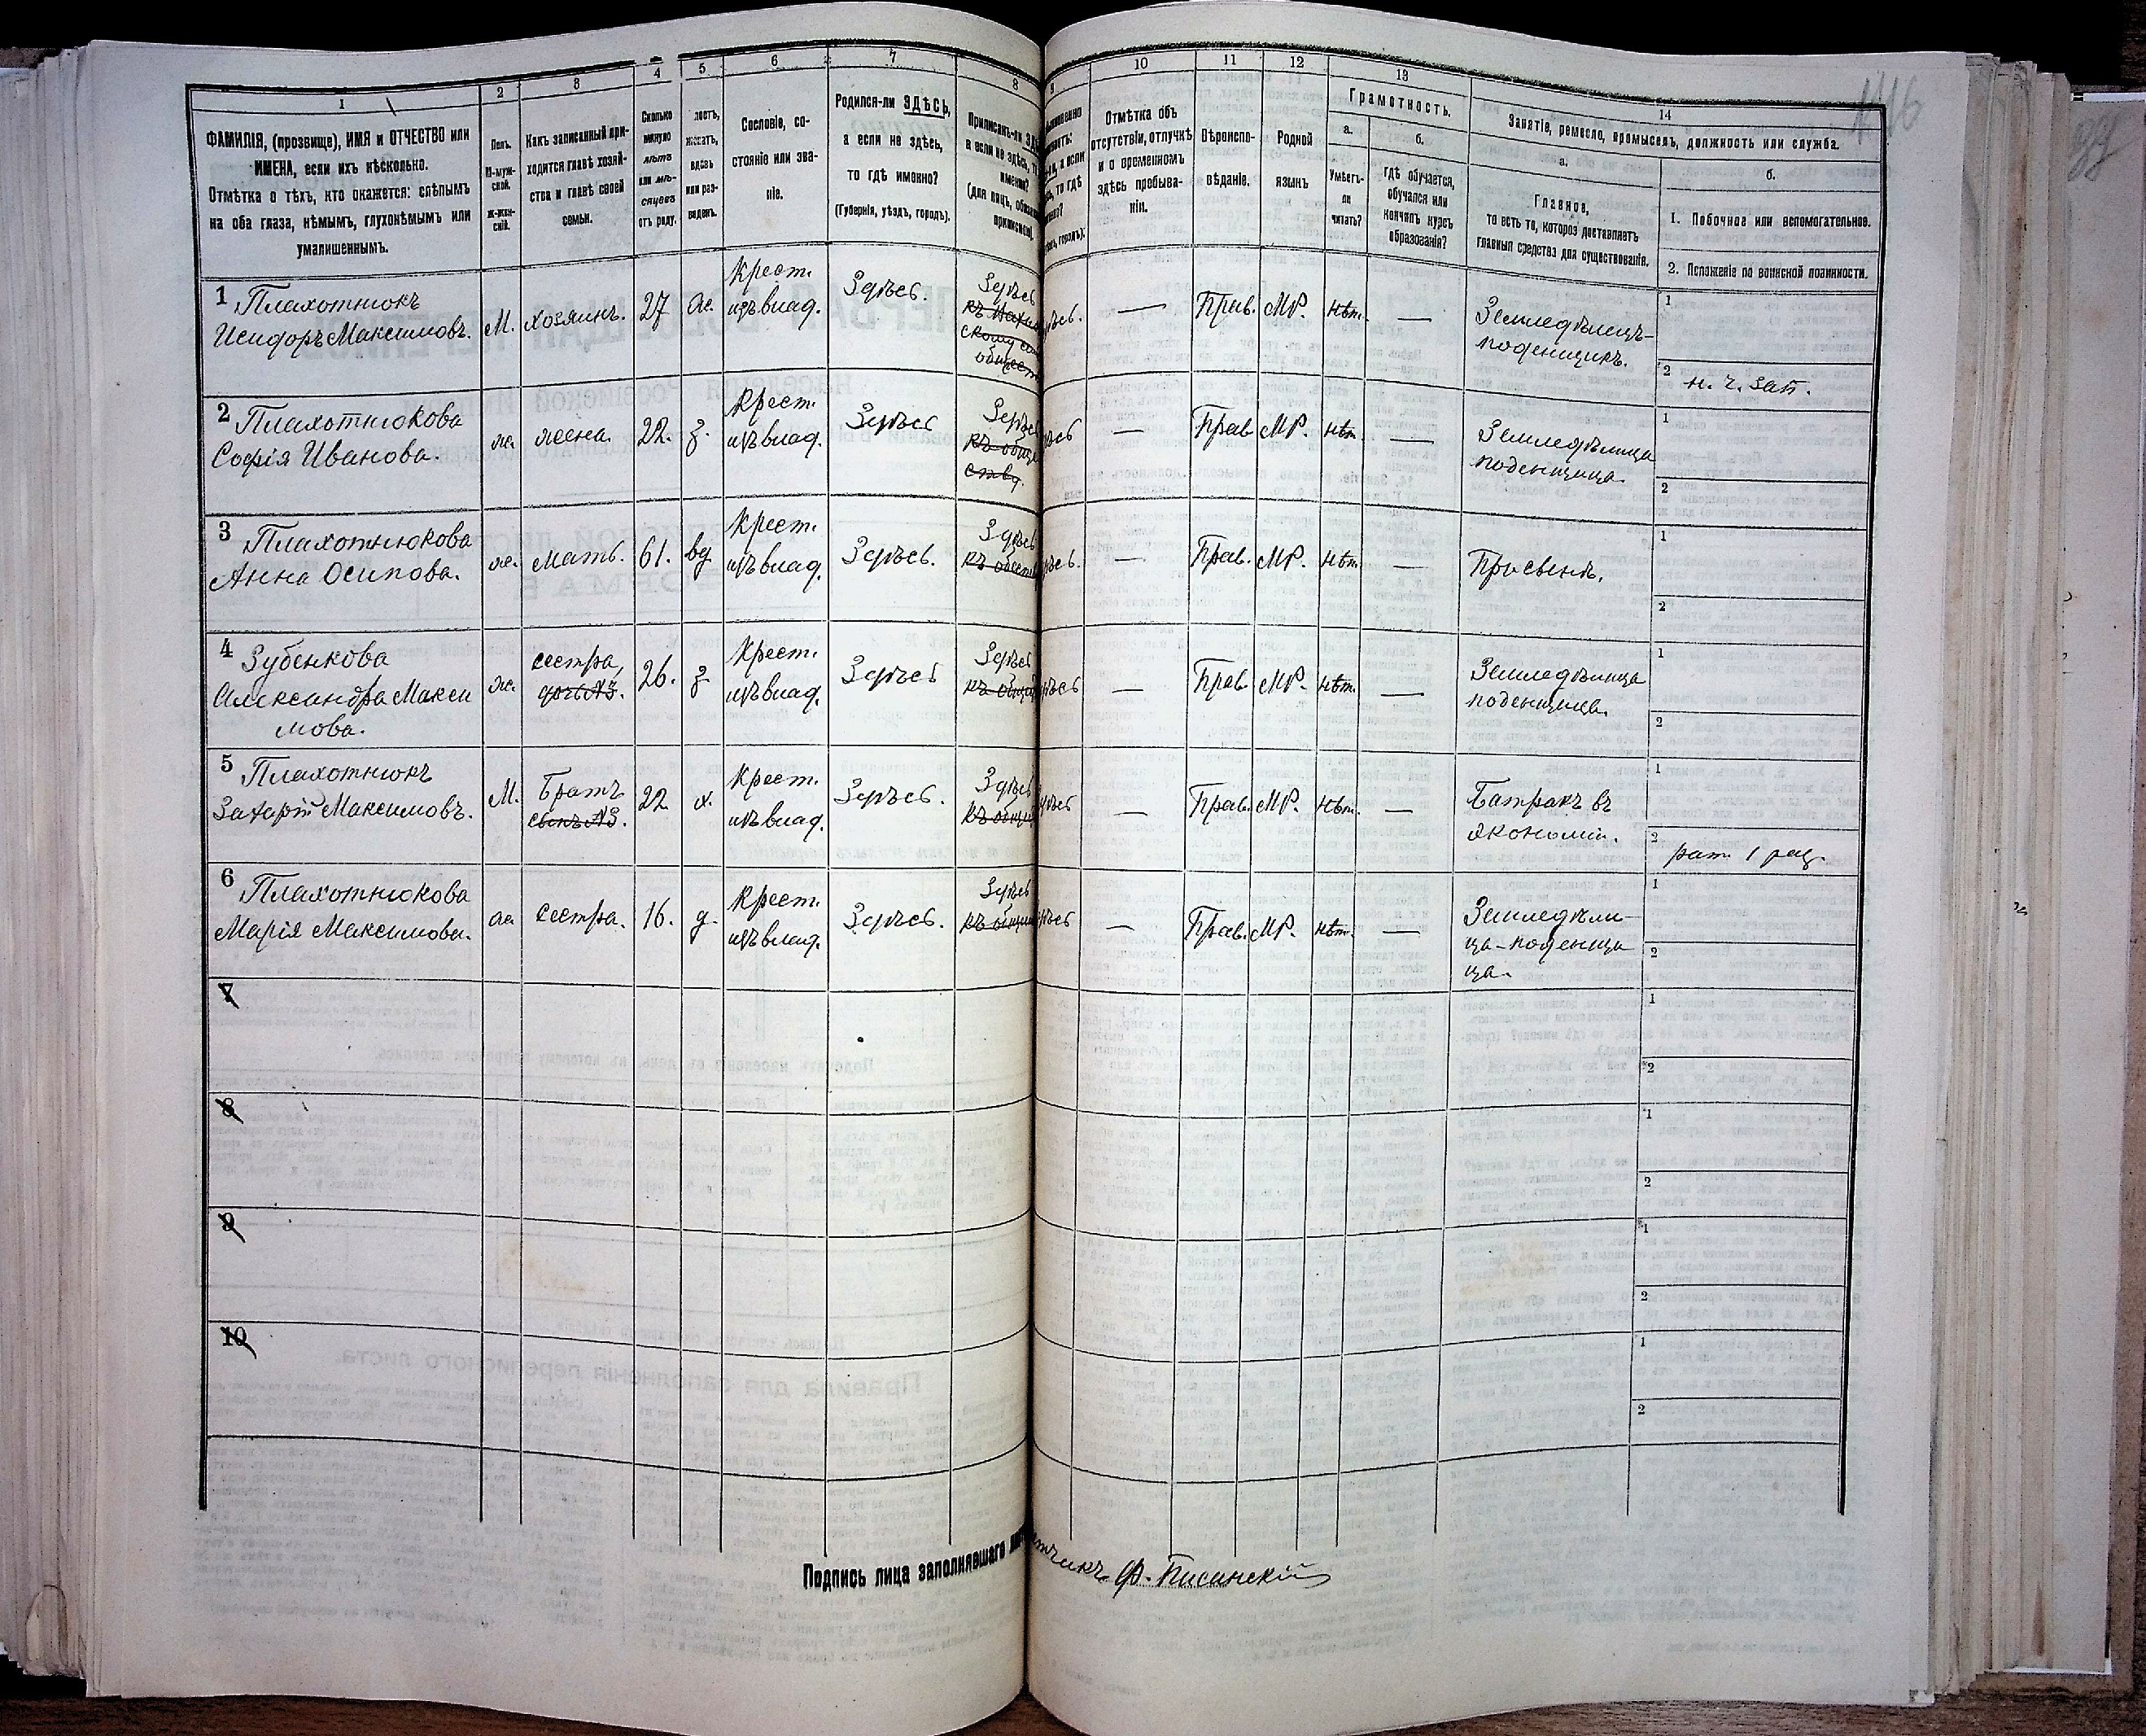 1 2 3 4 5 6 7 8 9 10 11 12 13 14
ФАМИЛІЯ, (прозвище), ИМЯ и ОТЧЕСТВО или
ИМЕНА, если ихъ нѣсколько.
Отмѣтка о тѣхъ, кто окажется: слѣпымъ
на оба глаза, нѣмымъ, глухонѣмымъ или
умалишеннымъ.
Полъ.
М-муж-
ской.
ж-жен-
скій.
Какъ записанный при-
ходится главѣ хозяй-
ства и главѣ своей
семьи.
Сколько
минуло
лѣтъ
или мѣ-
сяцевъ
отъ роду.
лостъ,
женатъ,
вдовъ
или раз-
веденъ.
Сословіе, со-
стояніе или зва-
ніе.
Родился-ли ЗДѢСЬ,
а если не здѣсь,
то гдѣ именно?
(Губернія, уѣздъ, городъ).
Приписанъ-ли
а если не здѣсь,
Отмѣтка объ
отсутствіи, отлучкѣ
и о временномъ
здѣсь пребыва-
ніи.
Вѣроиспо-
вѣданіе.
Родной
языкъ
Грамотность.
а.
Умѣетъ-
ли
читать?
б.
гдѣ обучается,
обучался или
кончилъ курсъ
образованія?
Занятіе, ремесло, промыселъ, должность или служба.
а.
Главное,
то есть то, которое доставляетъ
главныя средства для существованія.
б.
1. Побочное или вспомогательное.
2. Положеніе по воинской повинности.
1 Плахотнюкъ
Исидоръ Максимовъ.
М.
хозяинъ.
27
ж.
Крест.
изъ влад.
Здѣсь.
Здѣсь
—
Прав.
МР.
нѣт.
—
Земледѣлецъ-
поденщикъ.
1
2 н. ч. зап.
2 Плахотнюкова
Софія Иванова.
ж.
жена.
22.
з.
Крест.
изъ влад.
Здѣсь
Здѣсь
—
Прав
МР.
нѣт.
—
Земледѣлица
поденщица.
1
2
3 Плахотнюкова
Анна Осипова.
ж.
мать.
61.
вд
Крест.
изъ влад.
Здѣсь.
Здѣсь
—
Прав.
МР.
нѣт.
—
При сынѣ.
1
2
4 Зубенкова
Александра Макси
мова.
ж.
сестра,
дочь №3.
26.
з
Крест.
изъ влад.
Здѣсь
Здѣсь
—
Прав.
МР.
нѣт.
—
Земледѣлица
поденщица.
1
2
5 Плахотнюкъ
Захарій Максимовъ.
М.
Братъ
сынъ №3.
22
х.
Крест.
изъ влад.
Здѣсь.
Здѣсь
—
Прав.
МР.
нѣт.
—
Батракъ въ
экономіи.
1
2 рат. 1 раз.
6 Плахотнюкова
Марія Максимова.
ж
сестра.
16.
д.
Крест.
изъ влад.
Здѣсь.
Здѣсь
—
Прав.
МР.
нѣт.
—
Земледѣли-
ца-поденщи
ца.
1
2
7
1
2
8
1
2
9
1
2
10
1
2
Подпись лица заполнявшаго
Ф. Писинскій